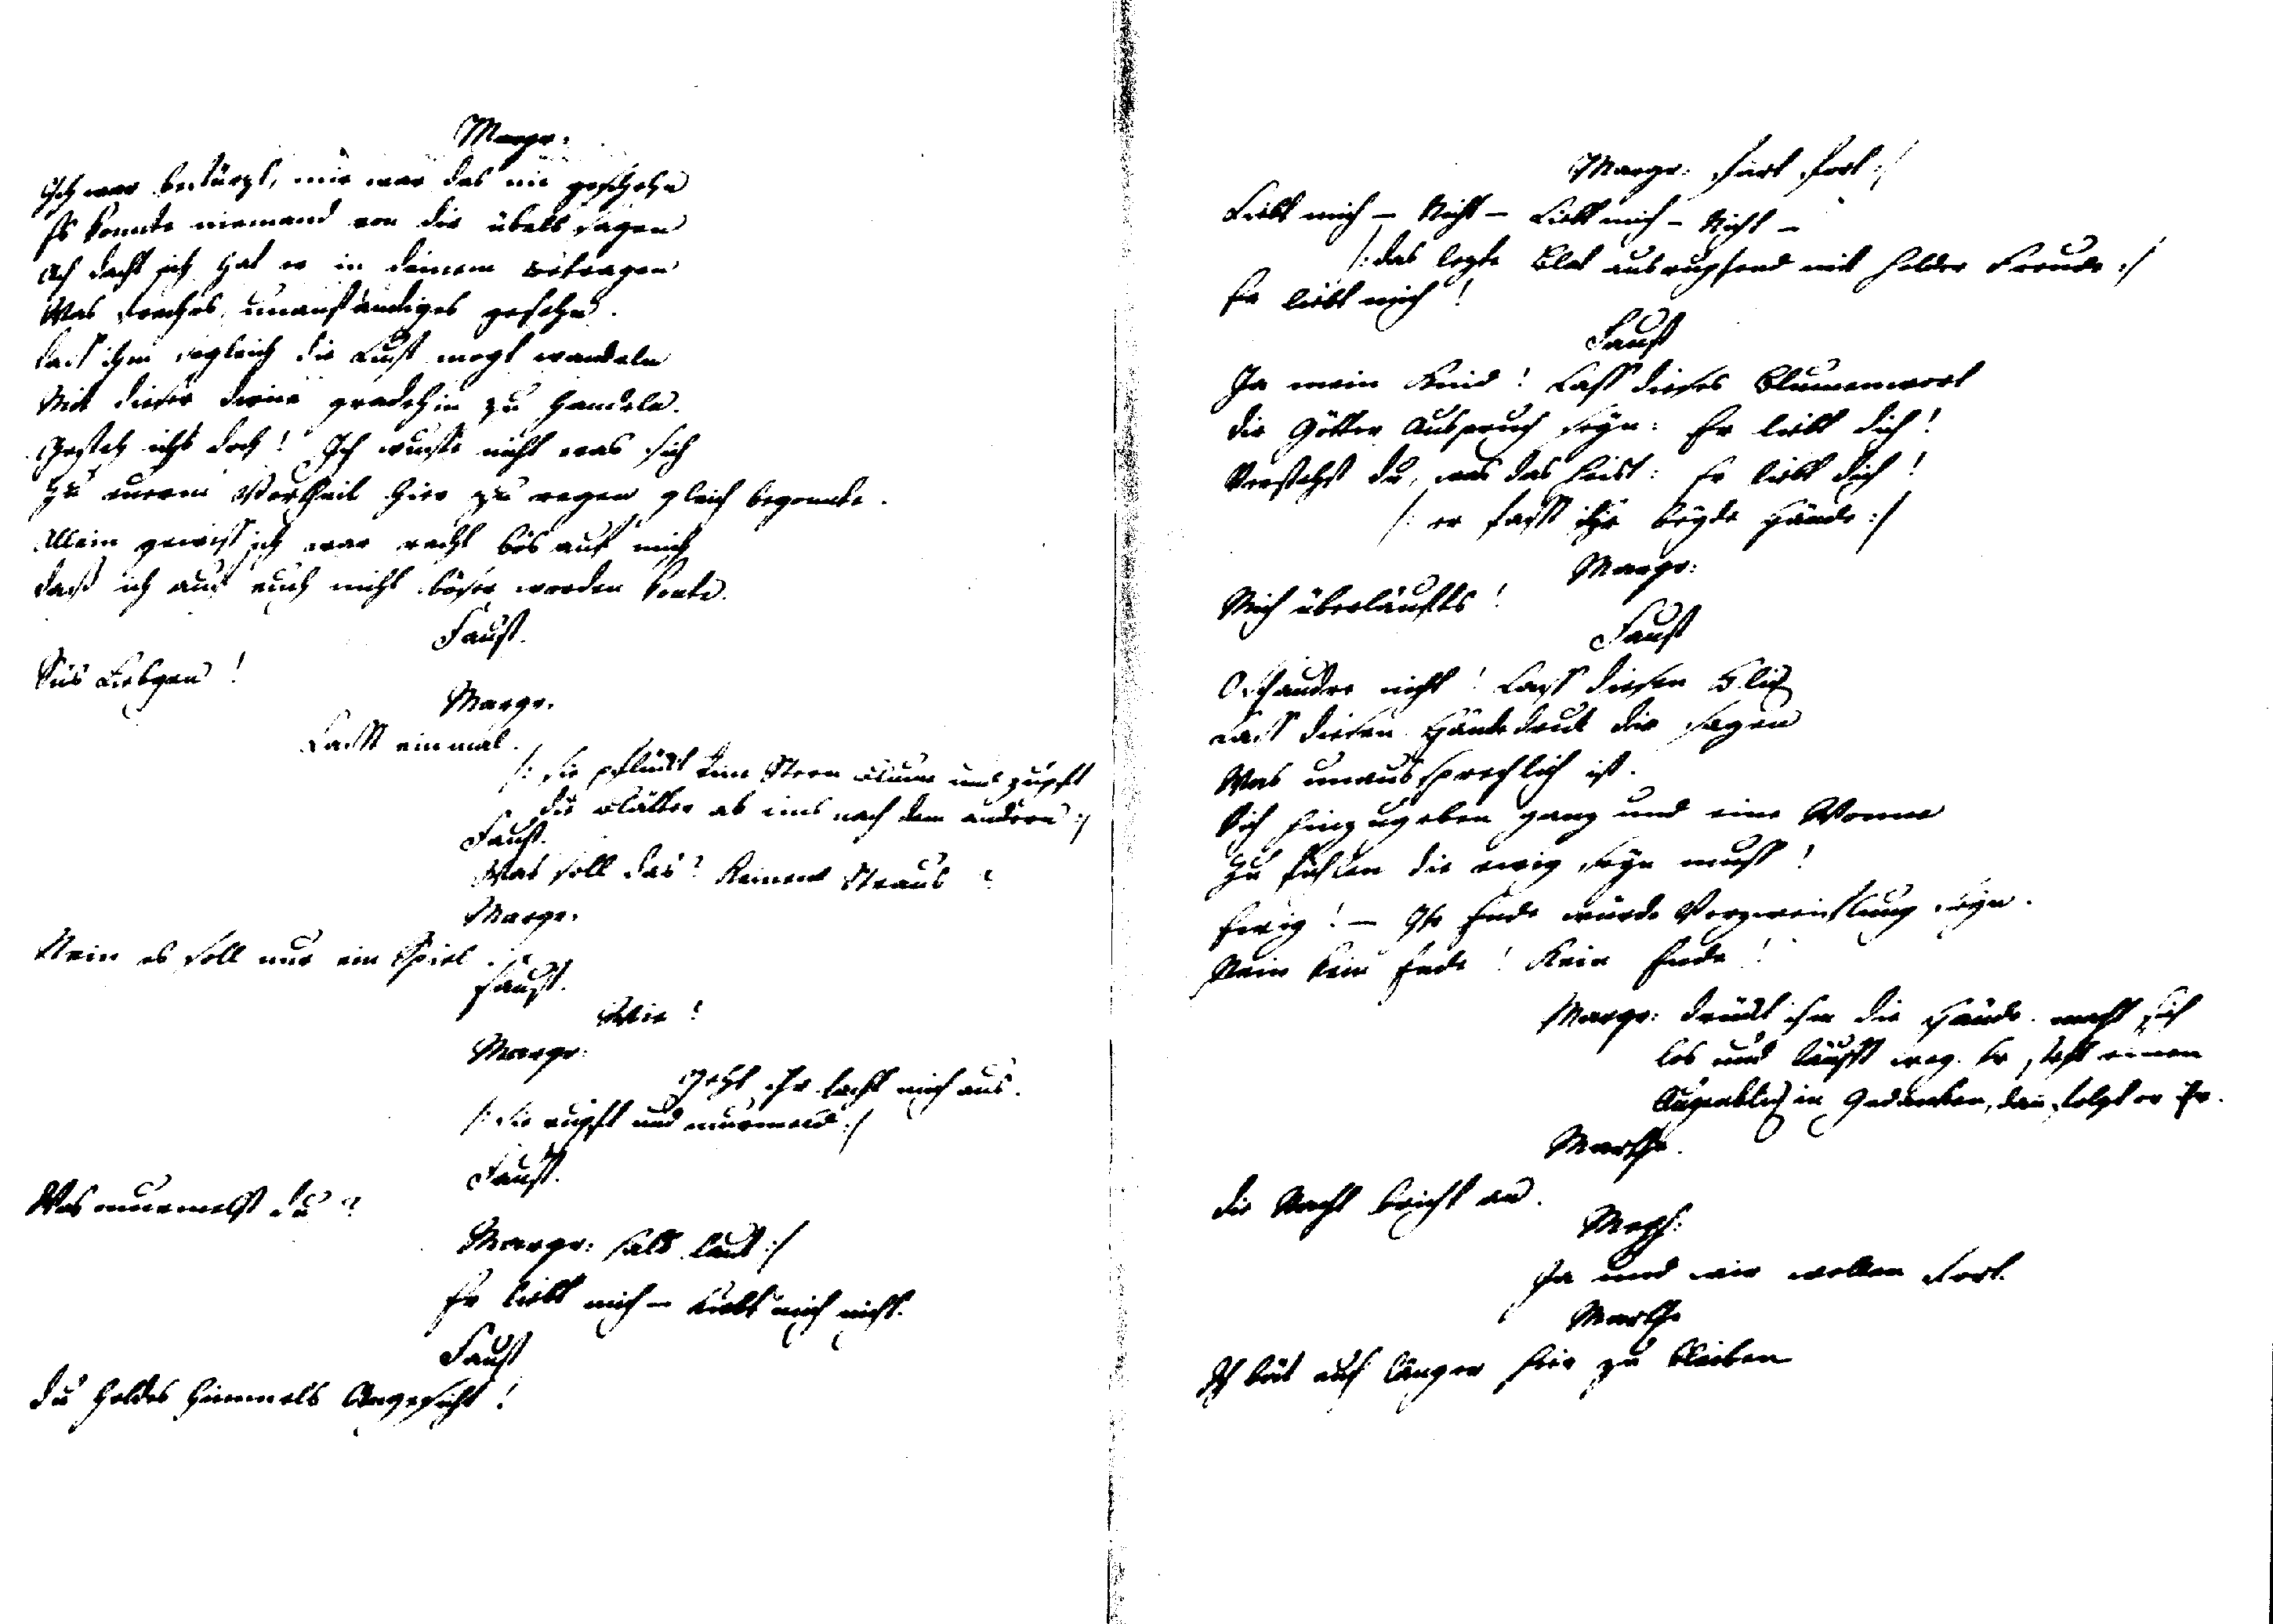 Margr.
Ich war bestürzt, mir war das nie geschehn
Es konnte niemand von dir übels sagen
Ach dacht ich hat er in deinem Betragen
Was freches, unanständiges gesehn.
Dass ihm sogleich die Lust mogt wandeln
Mit dieser Dirne gradehin zu handeln.
Gesteh ichs doch! Ich wusste nicht was sich
Zu eurem Vortheil hier zu regen gleich begonnte.
Allein gewiss ich war recht bös auf mich
Dass ich auf euch nicht böser werden konte.
Faust.
Süs Liebgen!
Margr.
Lasst einmal.
/: sie pflückt eine Stern Blume und zupft
die Blätter ab eins nach dem andern :/
Faust.
Was soll das? Keinen Straus?
Margr.
Nein es soll nur ein Spiel.
Faust.
Wie!
Margr:
Geht ihr lacht mich aus.
/: sie rupft und murmelt :/
Faust.
Was murmelst du?
Margr: halb laut :/
Er liebt mich – Liebt mich nicht.
Faust
Du holdes Himmels Angesicht!
Margr: färt fort :/
Liebt mich – Nicht – Liebt mich – Nicht –
/: das lezte Blat ausrupfend mit holder Freude :/
Er liebt mich!
Faust
Ja mein Kind! Lass dieses Blumenwort
Dir Götter Ausspruch seyn: Er liebt dich!
Verstehst du, was das heist: Er liebt dich!
/: er fasst ihr beyde Hände :/
Margr:
Mich überläufts!
Faust
O schaudre nicht! Lass diesen Blick
Lass diesen Händedruck dir sagen
Was unaussprechlich ist.
Sich hinzugeben ganz und eine Wonne
Zu fühlen die ewig seyn muss!
Ewig! – Ihr Ende würde Verzweiflung seyn.
Nein kein Ende! Kein Ende!
Margr: drückt ihm die Hände. macht sich
los und läufft weg. Er steht einen
Augenblick in Gedanken, dann folgt er ihr.
Marthe.
Die Nacht bricht an.
Meph:
Ja und wir wollen fort.
Marthe
Ich bät euch länger hier zu bleiben